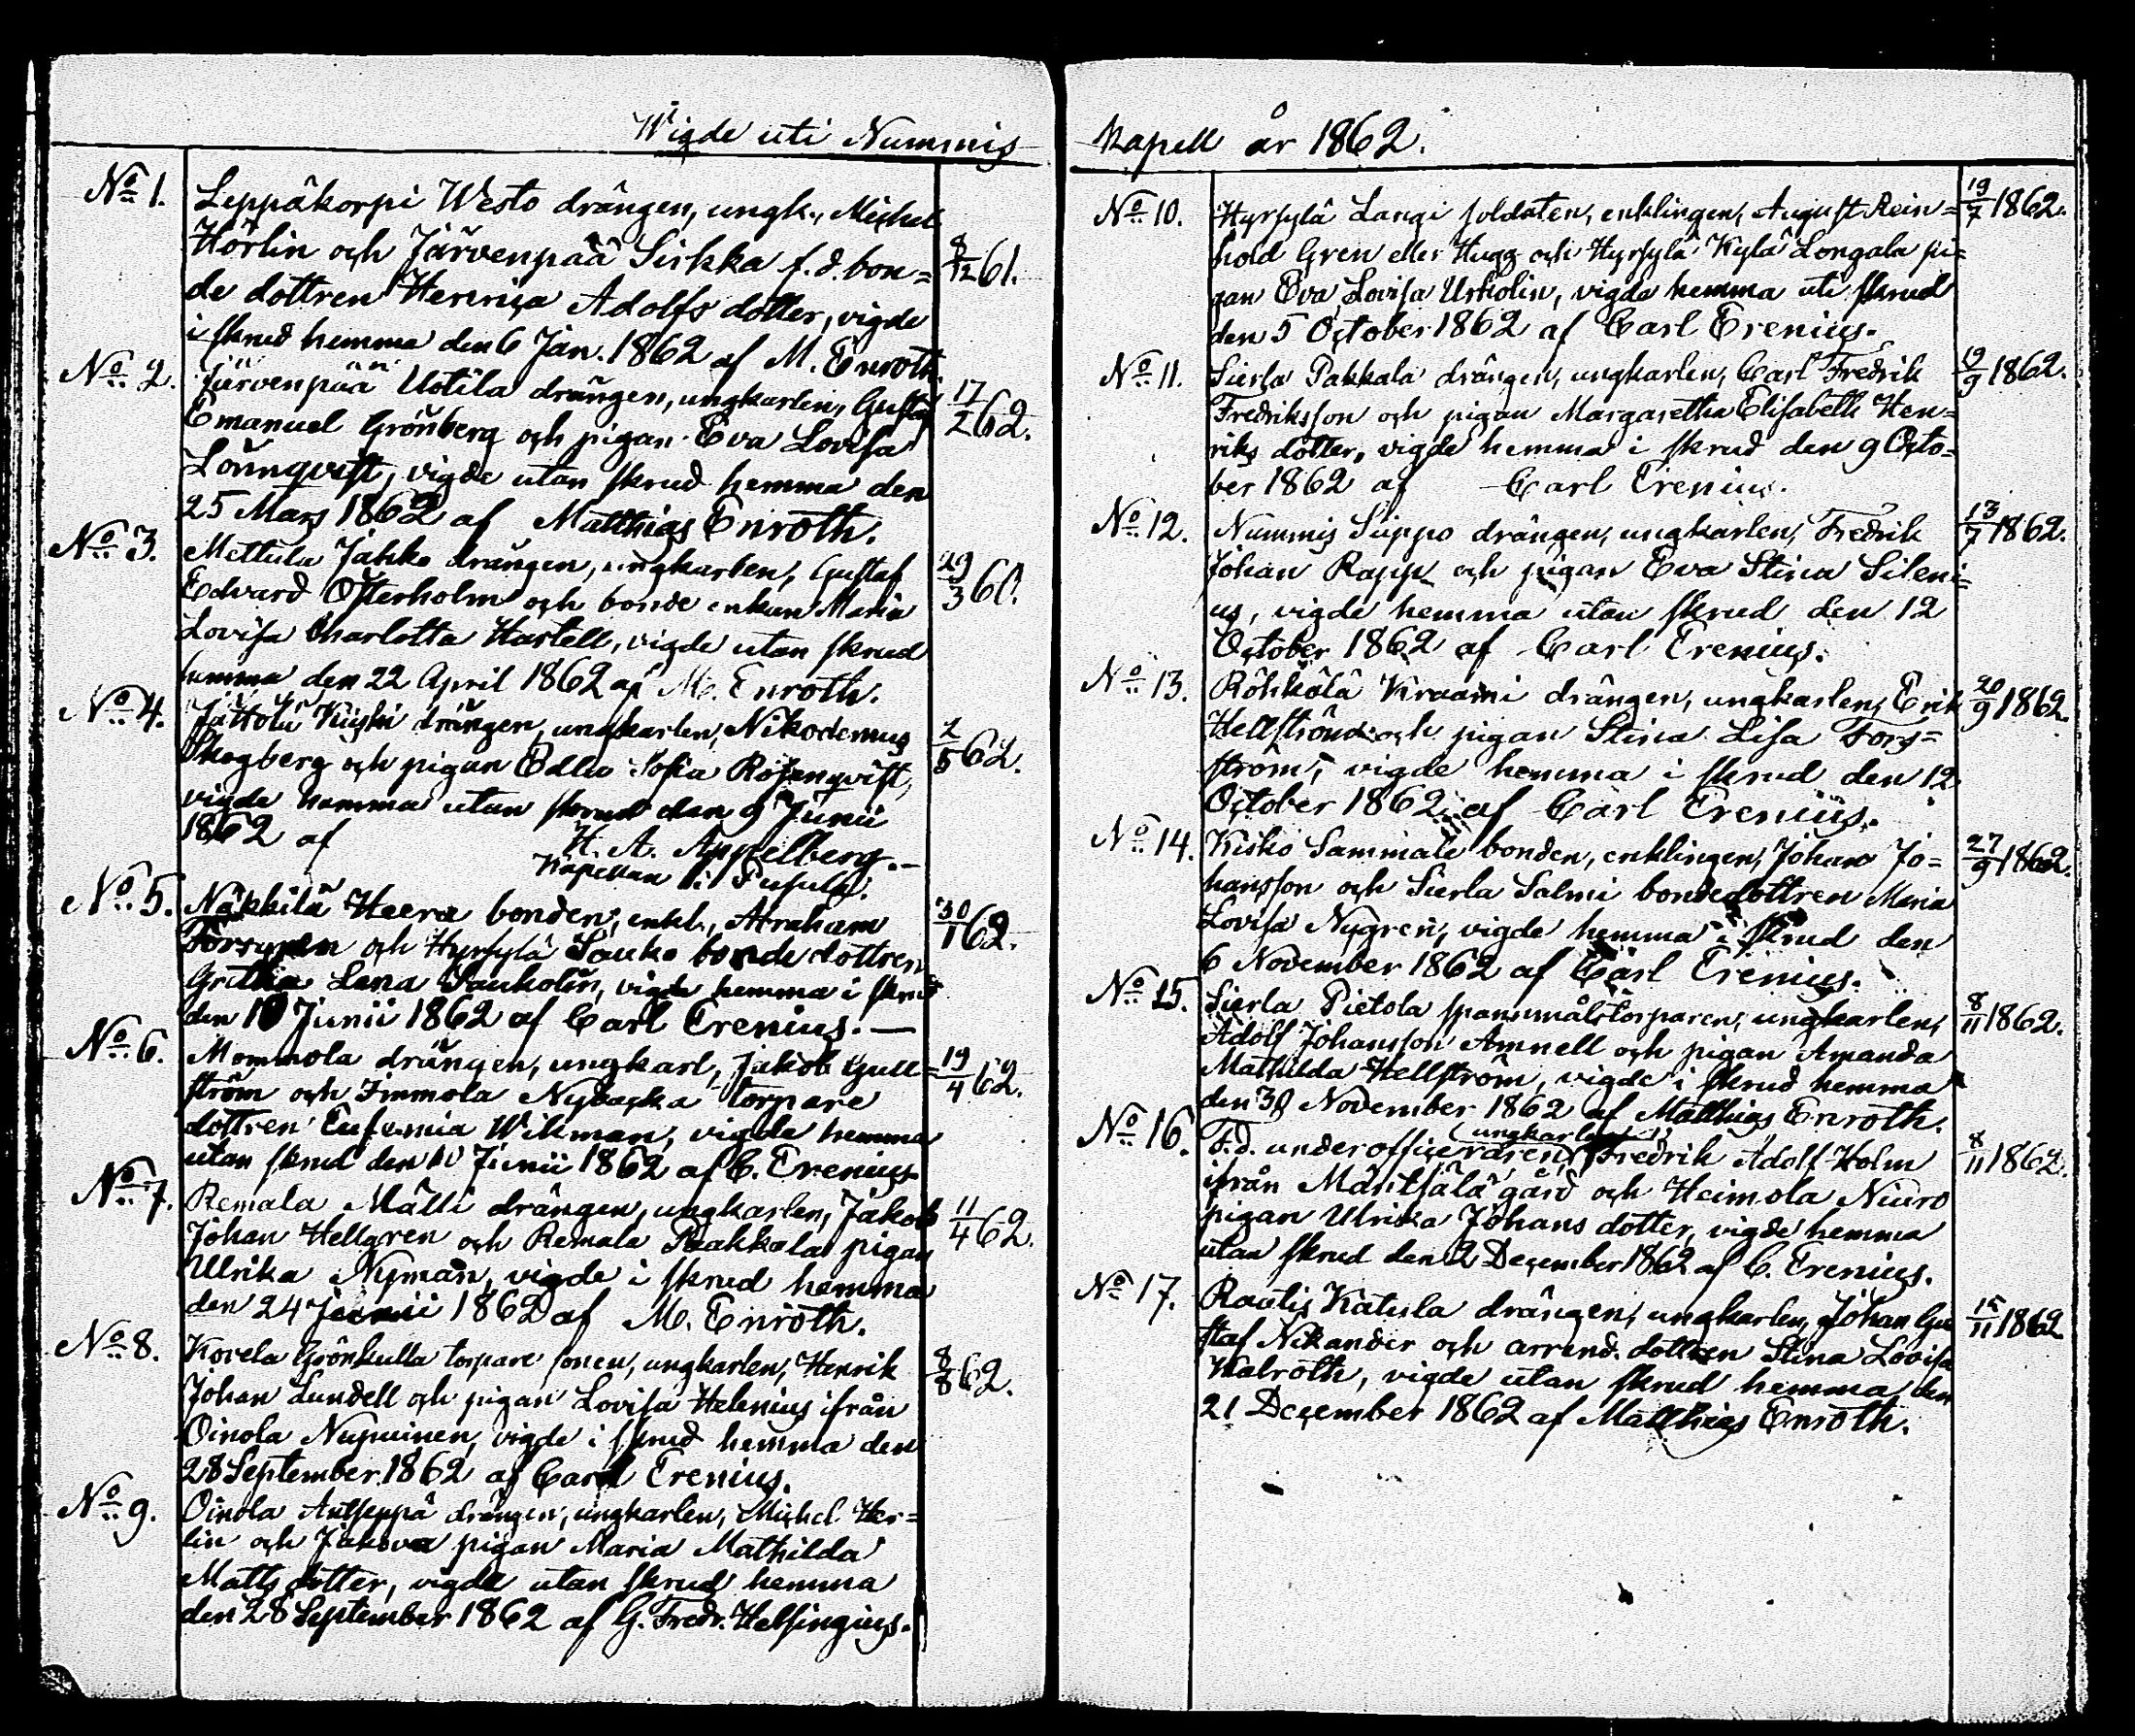 Wigde uti Nummis
No 1. Leppäkorpi Westo drängen, ungk., Michel
Hörlin och Järvenpää Sirkka f.d. bon=
de dottren Henrica Adolfs dotter, vigde
i skrud hemma den 6 Jan. 1862 af M. Enroth.
8/12 61.
No 2. Järvenpää Uotila drängen, ungkarlen, Gustaf
Emanuel Grönberg och pigan Eva Lovisa
Lönnqvist, vigde utan skrud hemma den
25 Mars 1862 af Matthias Enroth.
17/2 62.
No 3. Mettula Jahko drängen, ungkarlen, Gustaf
Edvard Österholm och bonde enkan Maria
Lovisa Charlotta Hartell, vigde utan skrud
hemma den 22 April 1862 af M. Enroth.
29/3 60.
No 4. Jättölä Kiiski drängen, ungkarlen, Nikodemus
Skogberg och pigan Edla Sofia Rosenqvist,
vigde hemma utan skrud den 9 Junii
1862 af H. A. Appelberg.-
Kapellan i Pusula.
2/5 62.
No 5. Näkkilä Heera bonden, enkl., Abraham
Forsgren och Hyrsylä Sauko bonde dottren
Gretha Lena Saukolin, vigde hemma i skrud
den 10 Junii 1862 af Carl Erenius.—
30/1 62.
No 6. Mommola drängen, ungkarl, Jakob Gull=
ström och Immola Nybacka torpare
dottren Eufemia Wikman, vigde hemma
utan skrud den 10 Junii 1862 af C. Erenius
19/4 62.
No 7. Remala Mälli drängen, ungkarlen, Jakob
Johan Hellgren och Remala Paakkala pigan
Ulrika Nyman, vigde i skrud hemma
den 24 Junii 1862 af M. Enroth.
11/4 62.
No 8. Kovela Grönkulla torpare sonen, ungkarlen, Henrik
Johan Lundell och pigan Lovisa Helenius ifrån
Oinola Nupuinen, vigde i skrud hemma den
28 September 1862 af Carl Erenius.
8/8 62.
No 9. Oinola Antseppä drängen, ungkarlen, Michel Her=
lin och Jakova pigan Maria Mathilda
Matts dotter, vigde utan skrud hemma
den 28 September 1862 af G. Fredr. Helsingius.
Kapell år 1862.
No 10. Hyrsylä Langi soldaten, enklingen, August Rein=
hold Gren eller Hugg och Hyrsylä Kylä Longala pi=
gan Eva Lovisa Urholin, vigde hemma uti skrud
den 5 October 1862 af Carl Erenius.
19/7 1862.
No 11. Sierla Pakkala drängen, ungkarlen, Carl Fredrik
Fredriksson och pigan Margaretha Elisabeth Hen=
riks dotter, vigde hemma i skrud den 9 Octo=
ber 1862 af Carl Erenius.
19/9 1862.
No 12. Nummis Suppo drängen, ungkarlen, Fredrik
Johan Rapp och pigan Eva Stina Sileni=
us, vigde hemma utan skrud den 12
October 1862 af Carl Erenius.
13/7 1862.
No 13. Röhkölä Kraami drängen, ungkarlen, Erik
Hellström och pigan Stina Lisa Fors=
ström, vigde hemma i skrud den 12
October 1862 af Carl Erenius.
20/9 1862.
No 14. Kisko Sammalo bonden, enklingen, Johan Jo=
hansson och Sierla Salmi bondedottren Maria
Lovisa Nygren, vigde hemma i skrud den
6 November 1862 af Carl Erenius.
27/9 1862.
No 15. Sierla Pietola spannmålstorparen, ungkarlen,
Adolf Johansson Amnell och pigan Amanda
Mathilda Hellström, vigde i skrud hemma
den 30 November 1862 af Matthias Enroth.
8/11 1862.
No 16. F.d. underofficeraren, (ungkarlen) Fredrik Adolf Holm
ifrån Mäntsälä gård och Heimola Niuro
pigan Ulrika Johans dotter, vigde hemma
utan skrud den 2 December 1862 af C. Erenius.
8/11 1862.
No 17. Raatis Katula drängen, ungkarlen, Johan Gu
staf Nikander och arrend. dottren Stina Lovisa
Walroth, vigde utan skrud hemma den
21 December 1862 af Matthias Enroth.
15/11 1862